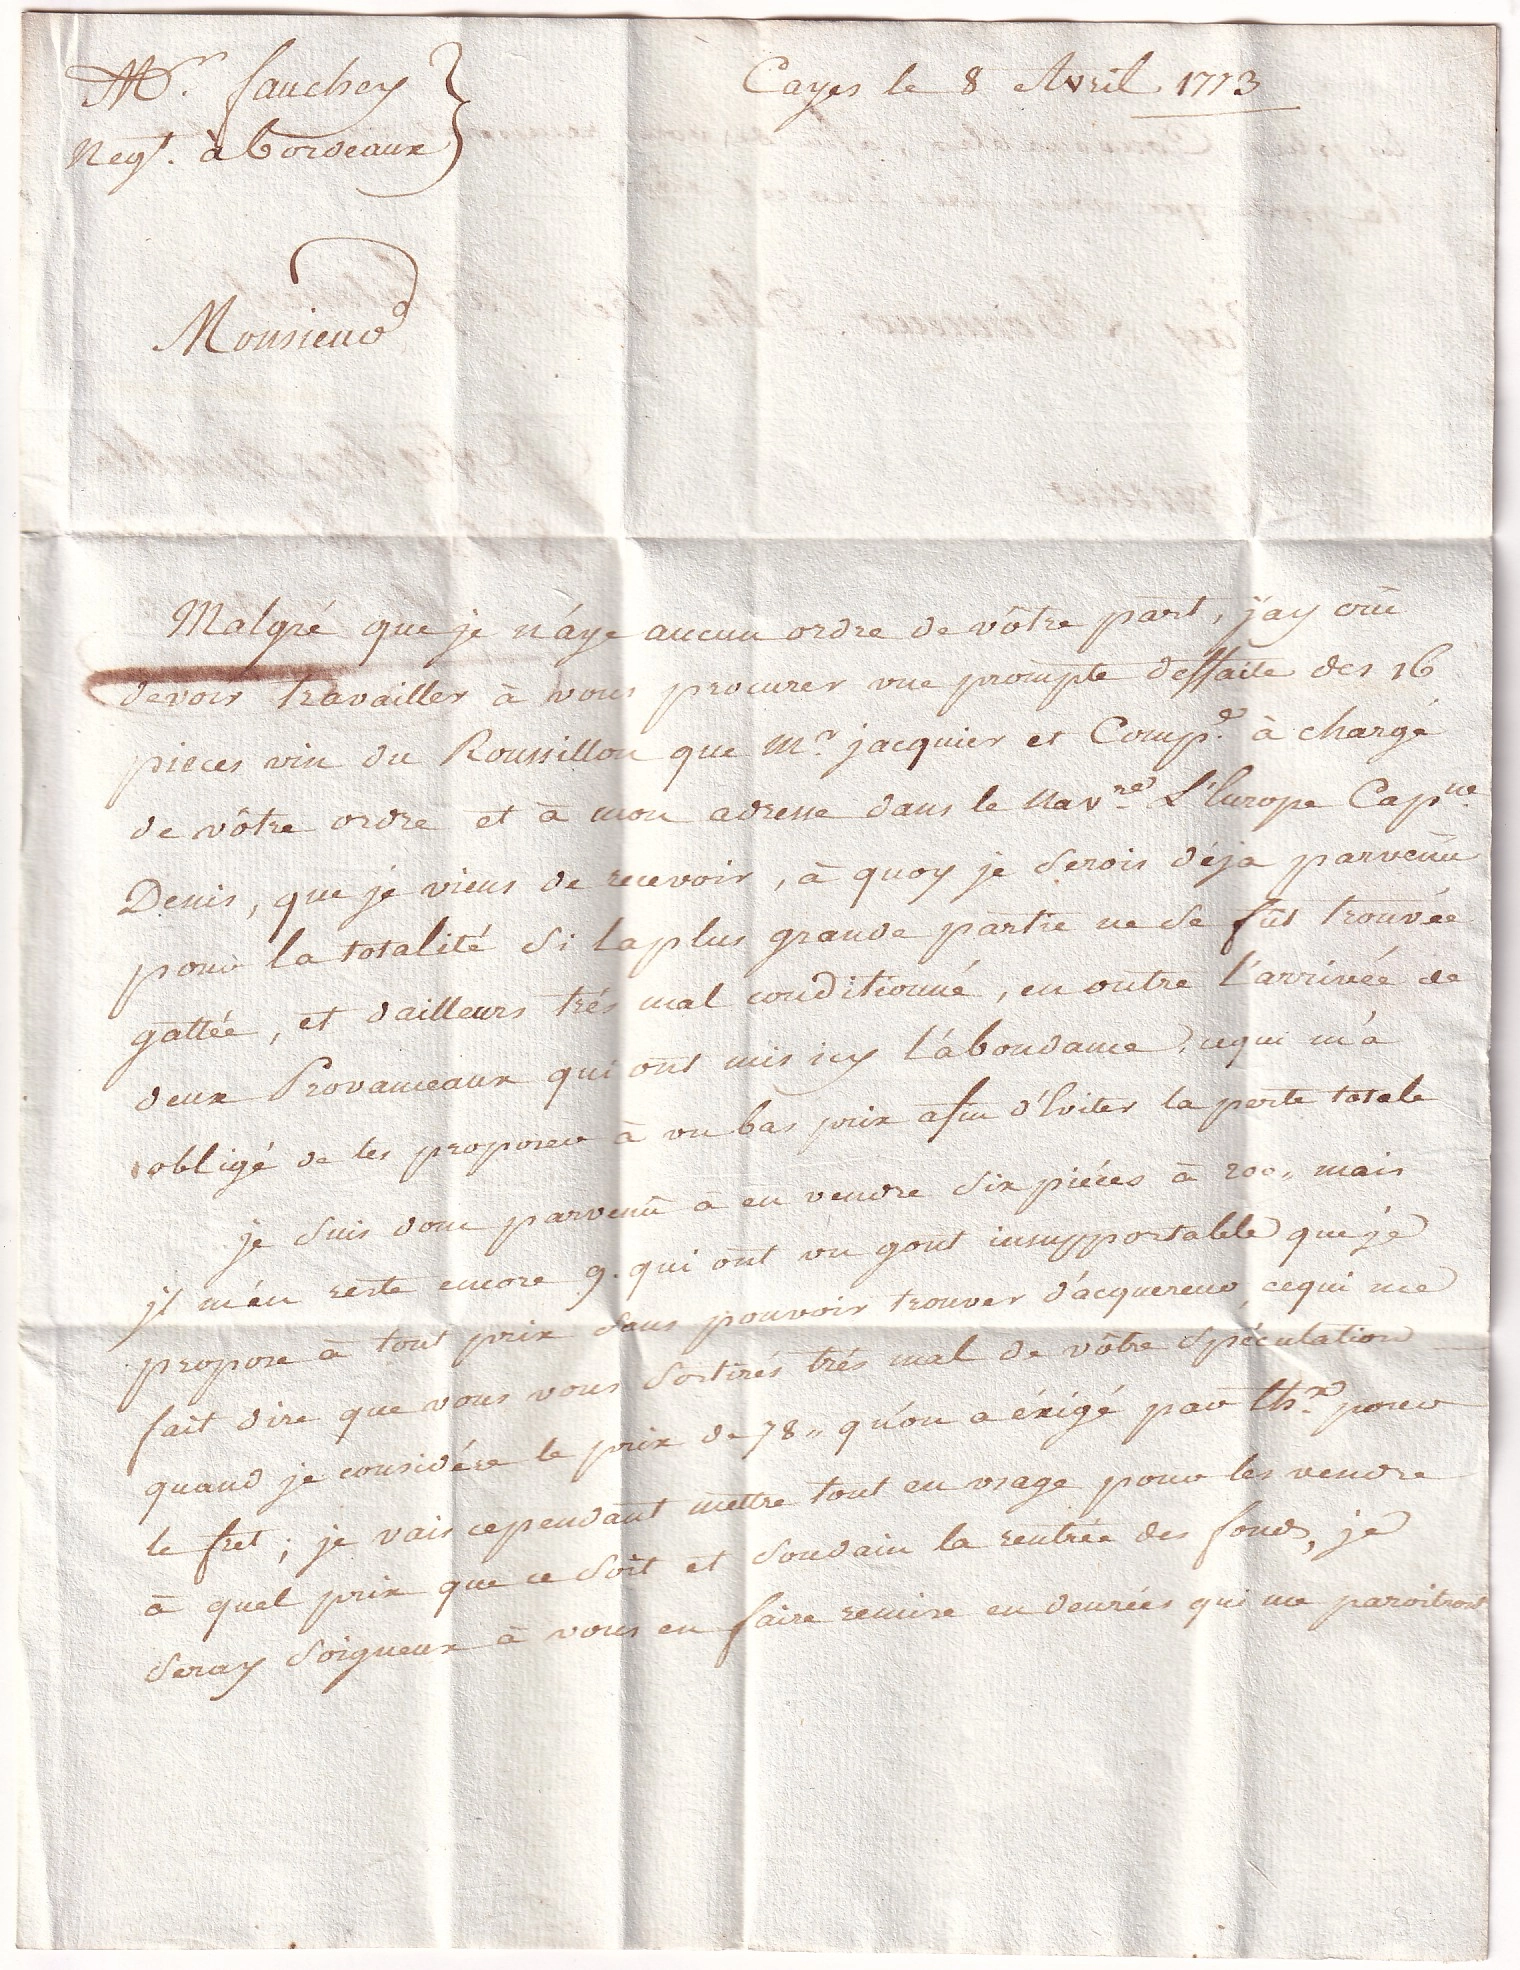 Mr. fauchey
Negt. à Bordeaux
Cayes le 8 Avril 1773
Monsieur
Malgré que je n'áye aucun ordre de vôtre part, j'ay crû
devoir travailler à vous procurer une prompte deffaite des 16
pieces vin du Roussillon que Mr. jacquier et Compe. à chargé
de vôtre ordre et à mon adresse dans le Navre. L'Europe Capne.
Denis, que je viens de recevoir, à quoy je serois déja parvenû
pour la totalité si la plus grande partie ne se fût trouvée
gattée, et dailleurs trés mal conditionné, en outre l'arrivée de
deux Provanceaux qui ont mis icy l'abondance, cequi m'a
obligé de les proposer à un bas prix afin d'Eviter la perte totale
je suis donc parvenû à en vendre six piéces à 200,, mais
jl m'en reste encore 9. qui ont un gout insupportable que je
propose à tout prix sans pouvoir trouver d'acquereur, cequi me
fait dire que vous vous sortirés trés mal de vôtre spéculation
quand je considére le prix de 78,, qu'on a éxigé par thx. pour
le fret; je vais cependant mettre tout en usage pour les vendre
à quel prix que ce soit et soudain la rentrée des fonds, je
seray soigneux à vous en faire remise en denrées qui me paroitront